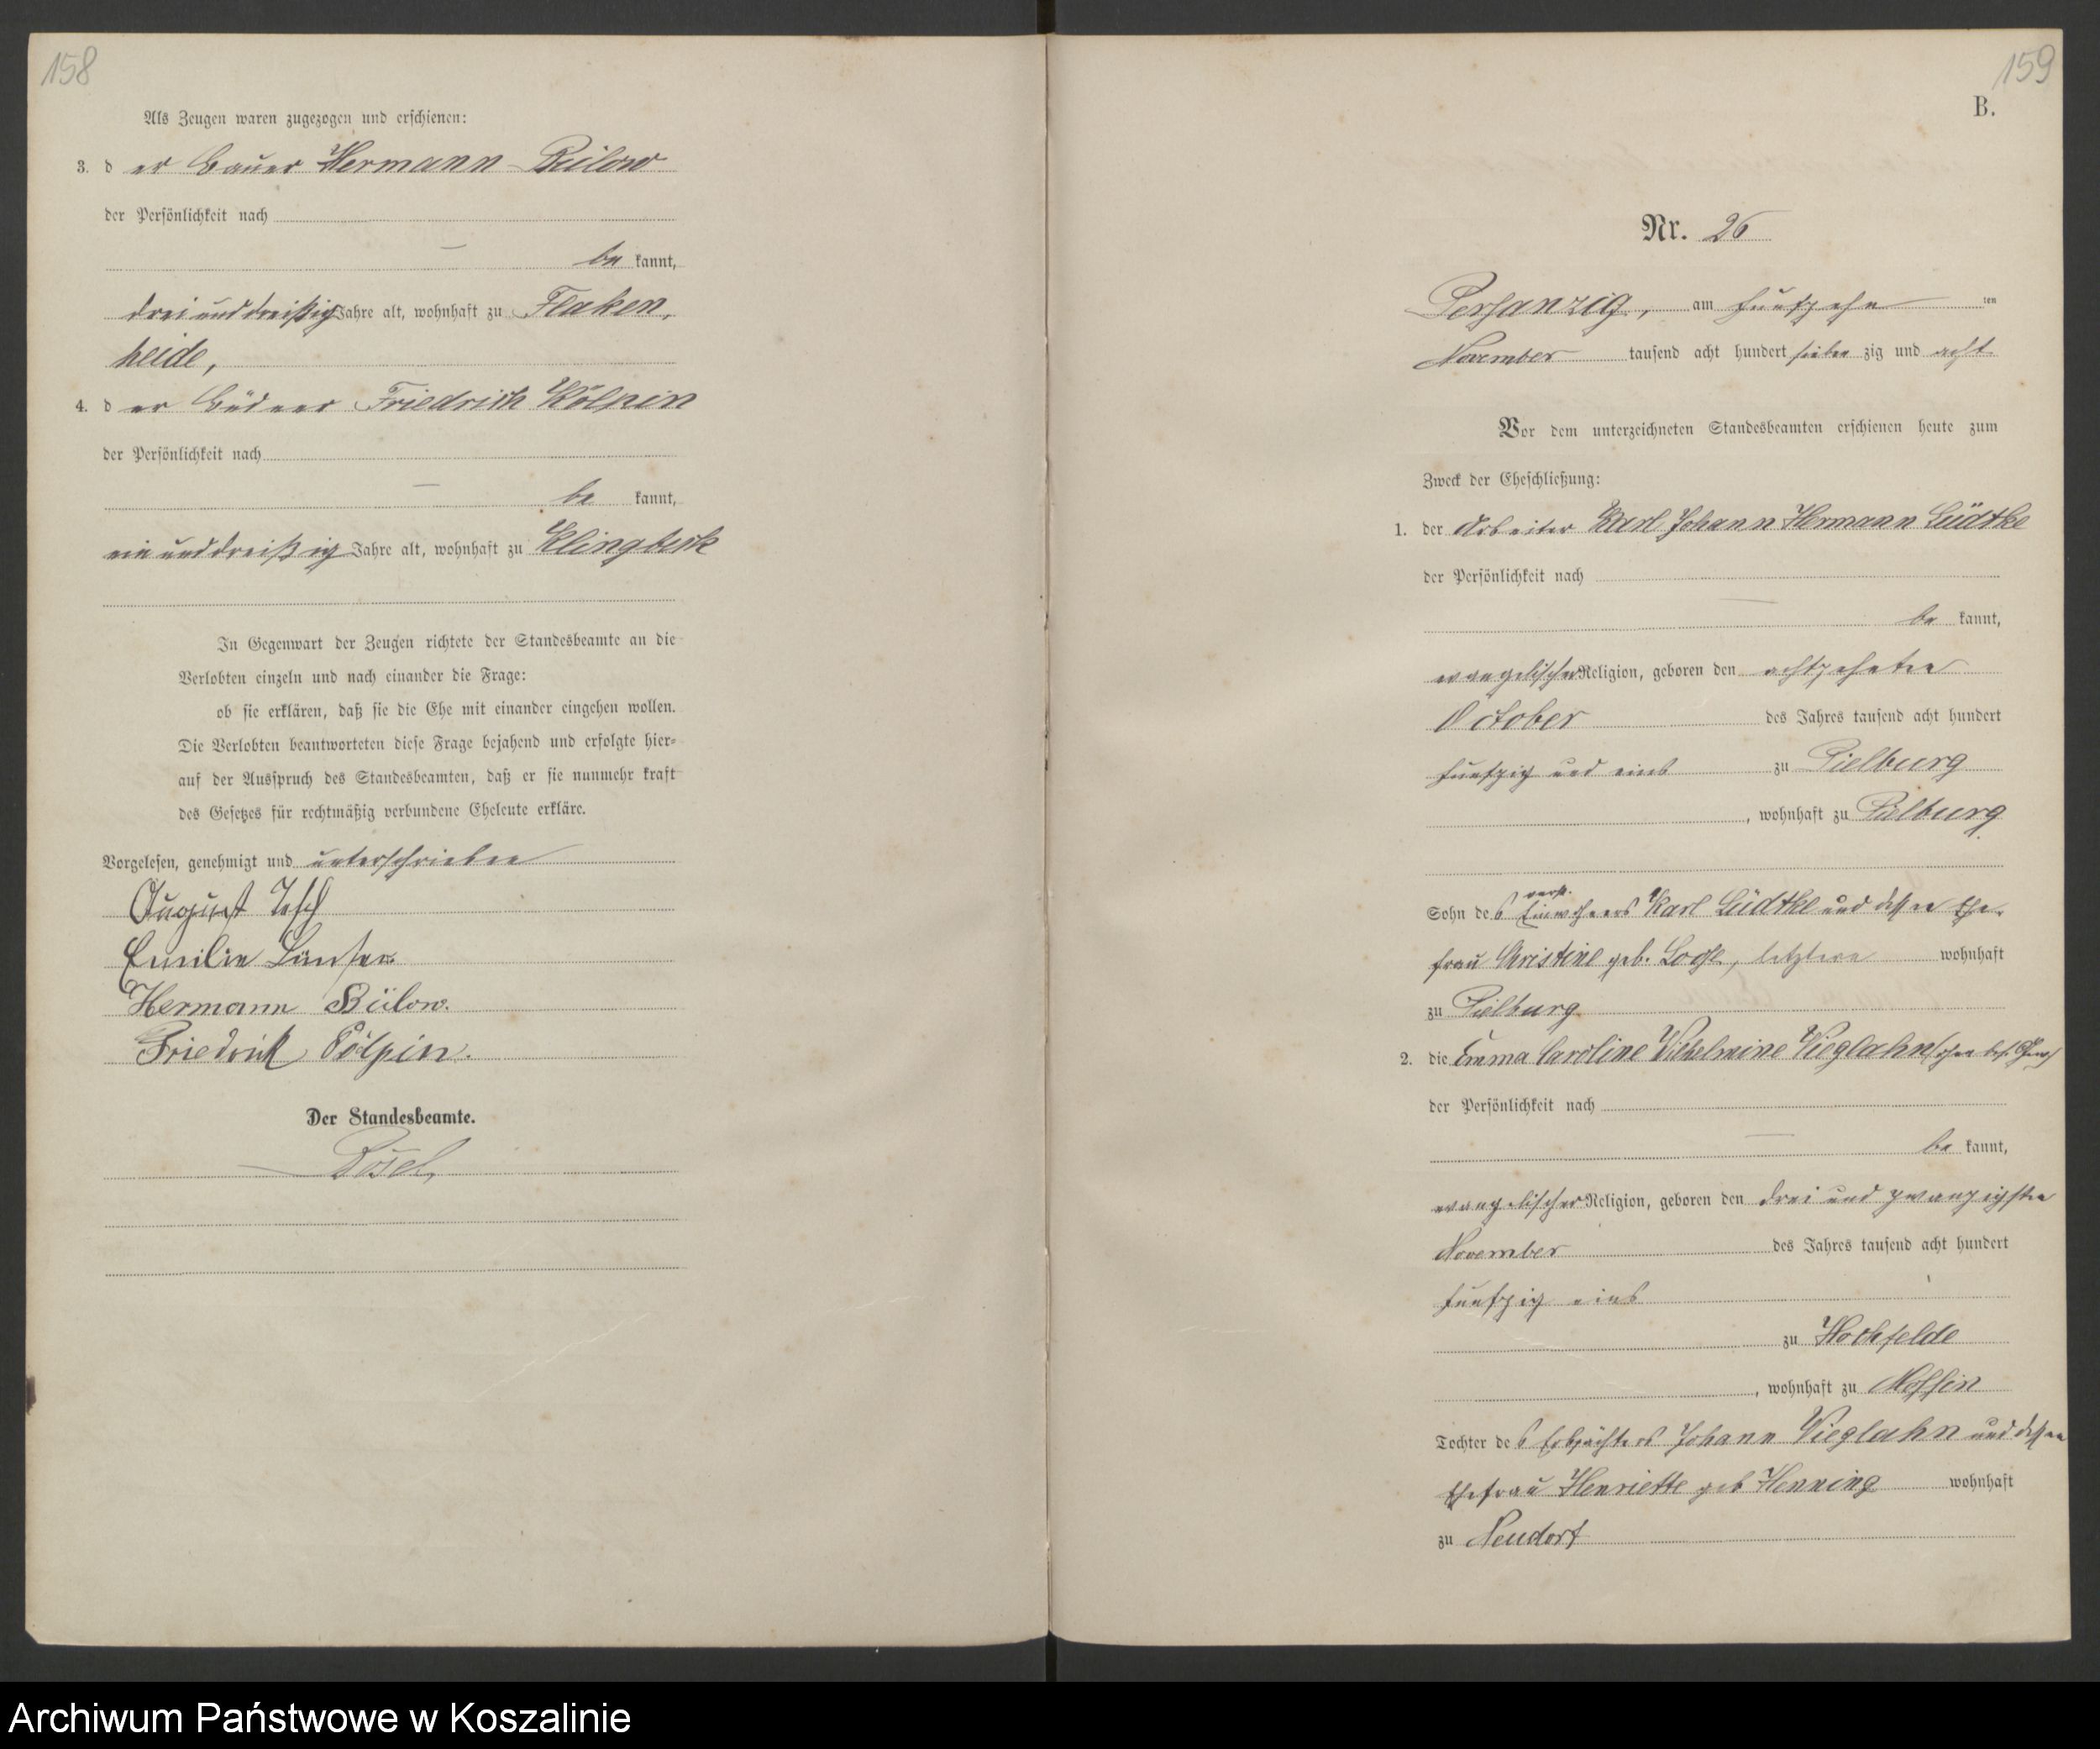 158
Als Zeugen waren zugezogen und erschienen:
3. d er Bauer Hermann Bülow
der Persönlichkeit nach
be kannt,
drei und dreißig Jahre alt, wohnhaft zu Flaken
heide,
4. d er Büdner Friedrich Kölpin
der Persönlichkeit nach
be kannt,
ein und dreißig Jahre alt, wohnhaft zu Klingbeck
In Gegenwart der Zeugen richtete der Standesbeamte an die
Verlobten einzeln und nach einander die Frage:
ob sie erklären, daß sie die Ehe mit einander eingehen wollen.
Die Verlobten beantworteten diese Frage bejahend und erfolgte hier-
auf der Ausspruch des Standesbeamten, daß er sie nunmehr kraft
des Gesetzes für rechtmäßig verbundene Eheleute erkläre.
Vorgelesen, genehmigt und unterschrieben
August Tesch
Emilie
Hermann Bülow.
Friedrich Kölpin.
Der Standesbeamte.
159
B.
Nr. 26
Persanzig, am fünfzehn ten
November tausend acht hundert sieben zig und acht
Vor dem unterzeichneten Standesbeamten erschienen heute zum
Zweck der Eheschließung:
1. der Arbeiter Karl Johann Hermann Lüdtke
der Persönlichkeit nach
be kannt,
evangelischer Religion, geboren den achtzehnten
October des Jahres tausend acht hundert
fünfzig und eins zu Pielburg
, wohnhaft zu Pielburg
verst.
Sohn des Einwohners Karl Lüdtke und dessen Ehe-
frau Christine geb. letztere wohnhaft
zu Pielburg
2. die Emma Caroline Wilhelmine Vieglahn
der Persönlichkeit nach
be kannt,
evangelischer Religion, geboren den drei und zwanzigsten
November des Jahres tausend acht hundert
fünfzig eins
zu Hochfelde
, wohnhaft zu Mossin
Tochter des Erbpächters Johann Vieglahn und dessen
Ehefrau Henriette geb Henning wohnhaft
zu Neudorf
Archiwum Państwowe w Koszalinie